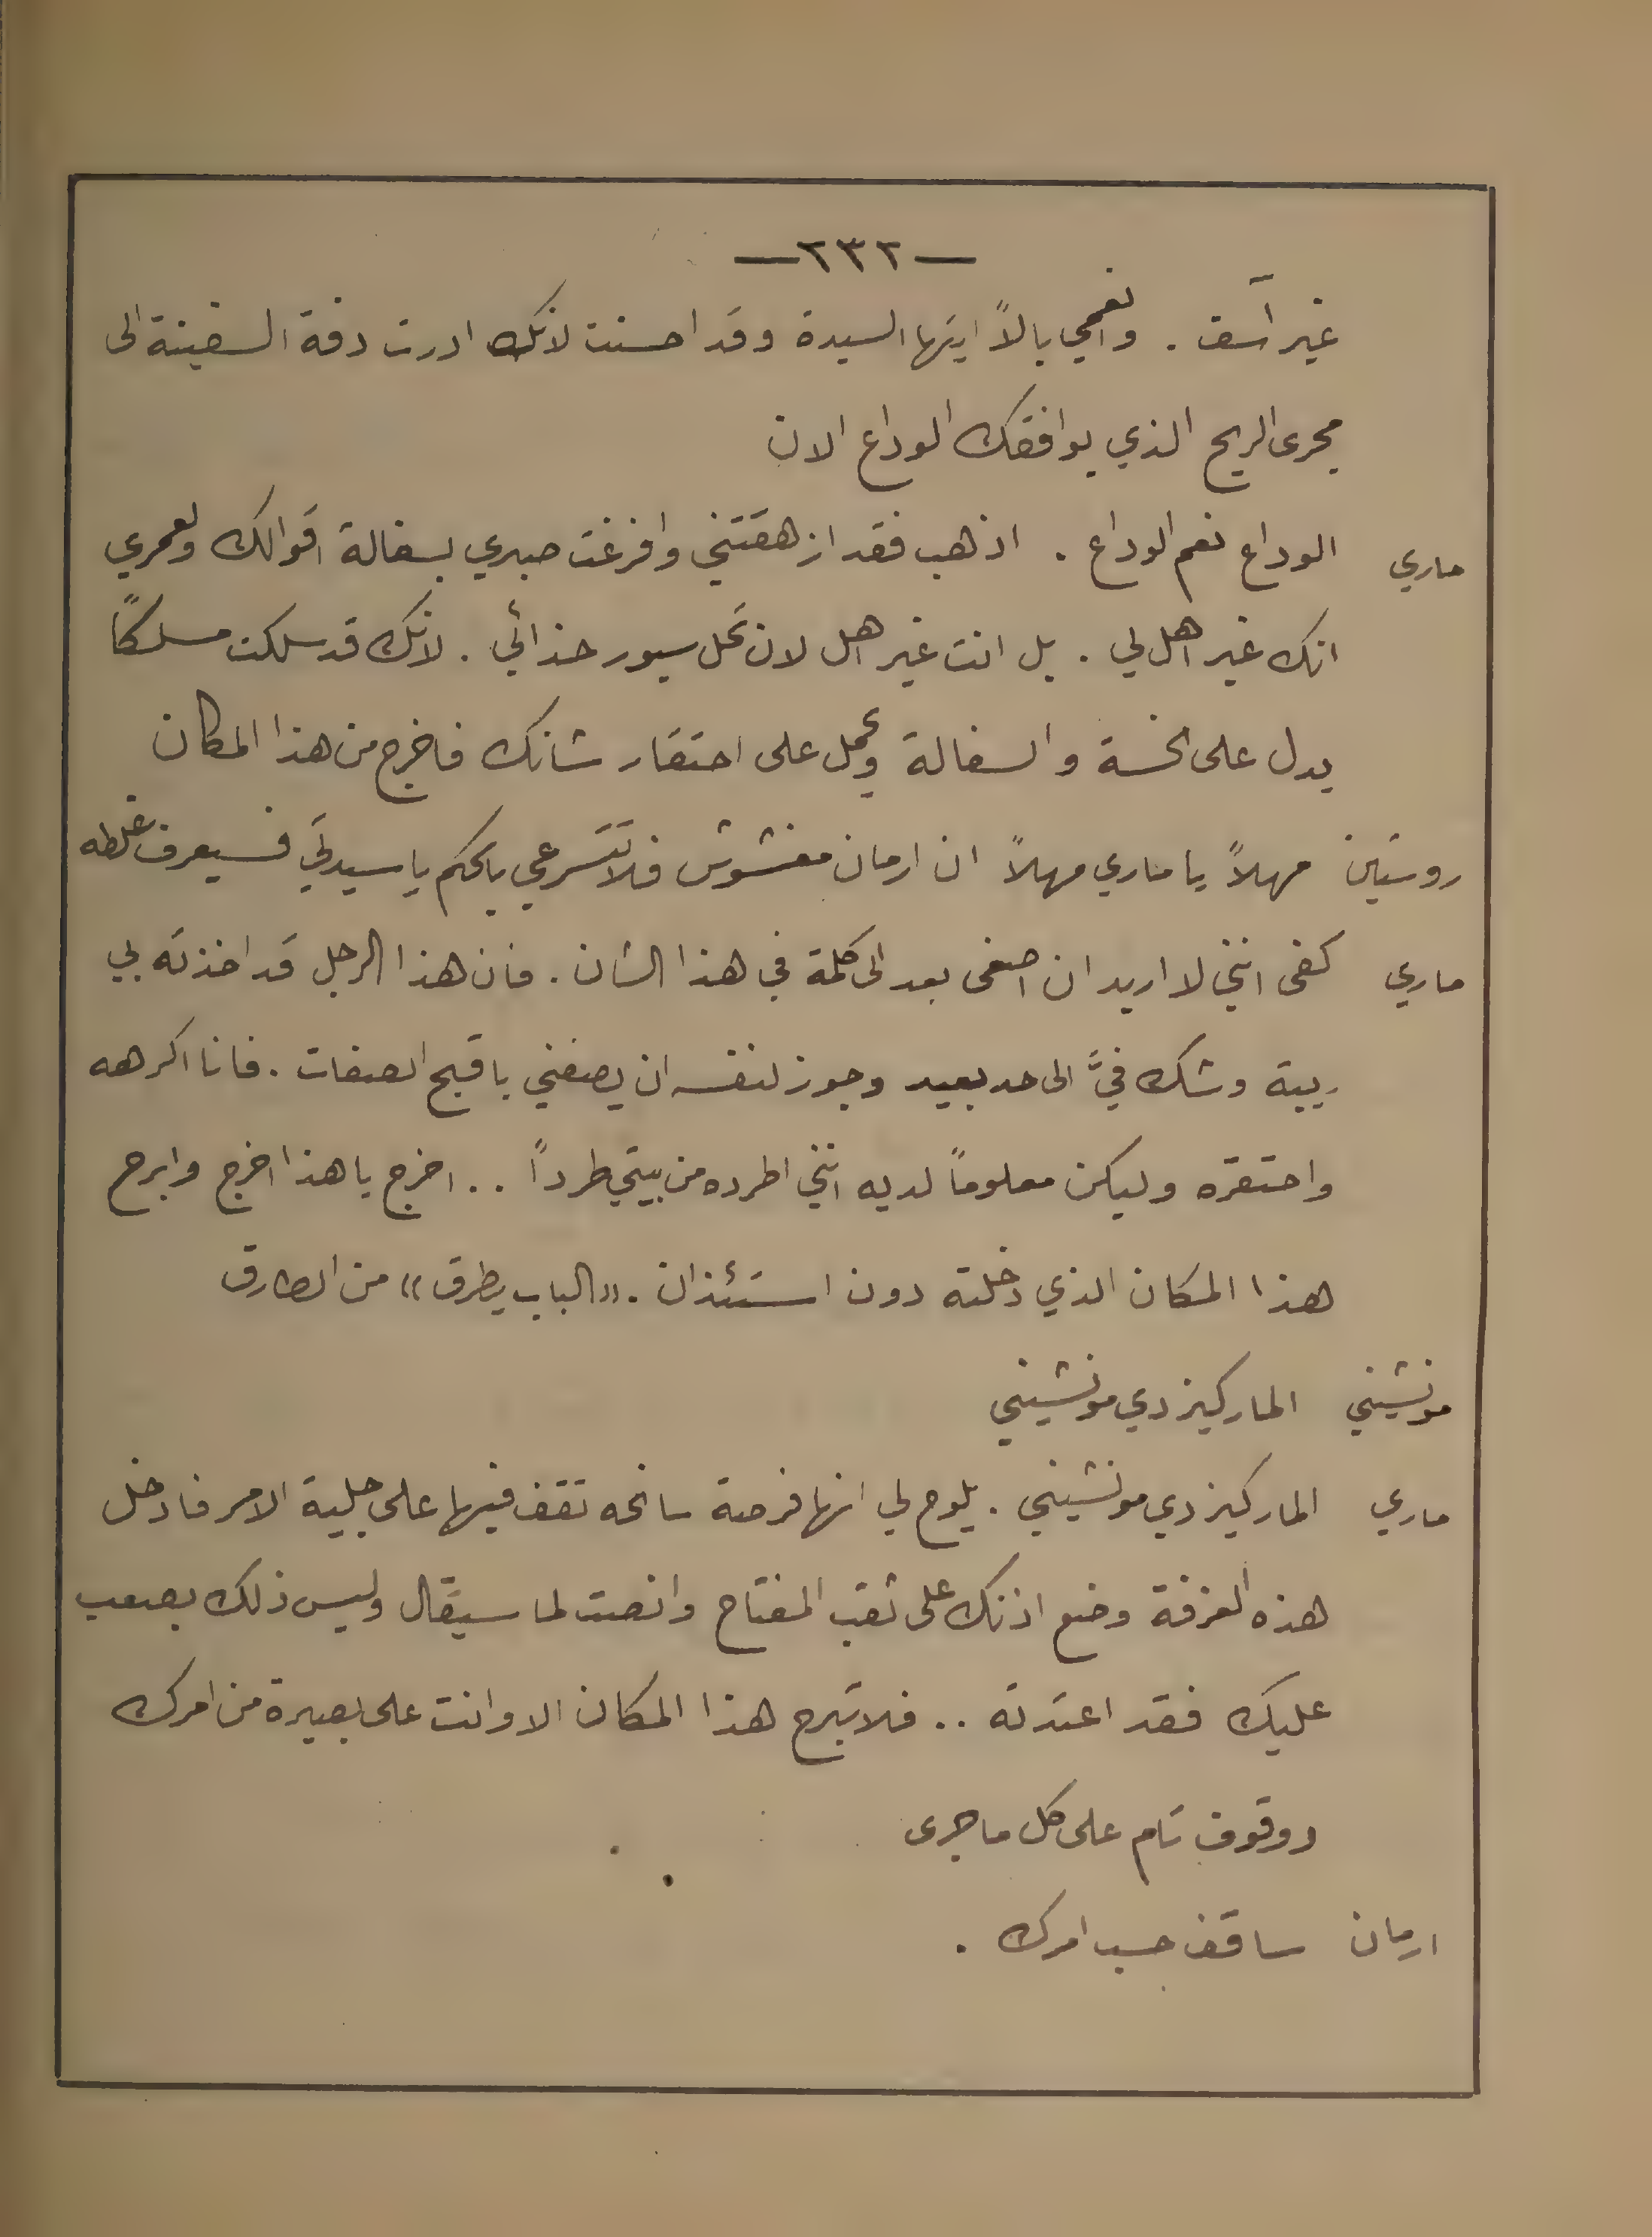 —٢٣٢—
غير آسف . وانعمي بالاً ايتها السيدة وقد احسنت لانك ادرت دفة السفينة الى
مجرى الريح الذي يوافقك الوداع الان
ماري الوداع نعم الوداع . اذهب فقد ازهقتني وافرغت صبري بسفالة اقوالك ولعمري
انك غير اهل لي . بل انت غير اهل لان تحل سيور حذائي . لانك قد سلكت مسلكاً
يدل على الخسة والسفالة ويحمل على احتقار شانك فاخرج من هذا المكان
روستين مهلاً يا ماري مهلاً ان ارمان مغشوش فلا تتسرعي بالحكم يا سيدتي فسيعرف غلطه
ماري كفى انني لا اريد ان اصغى بعد الى كلمة في هذا الشان . فان هذا الرجل قد اخذته بي
ريبة وشك فيَّ الى حد بعيد وجوز لنفسه ان يصفني باقبح الصفات . فانا اكرهه
واحتقره وليكن معلوماً لديه انني اطرده من بيتي طرداً . . اخرج يا هذا اخرج وابرح
هذا المكان الذي دخلته دون استئذان . «الباب يطرق» من الطارق
مونشيني الماركيز دي مونشيني
ماري الماركيز دي مونشيني . يلوح لي انها فرصة سانحه تقف فيها على جلية الامر فادخل
هذه الغرفة وضع اذنك على ثقب المفتاح وانصت لما سيقال وليس ذلك بصعب
عليك فقد اعتدته . . فلا تبرح هذا المكان الا وانت على بصيرة من امرك
ووقوف تام على كل ما جرى
ارمان ساقف حسب امرك .